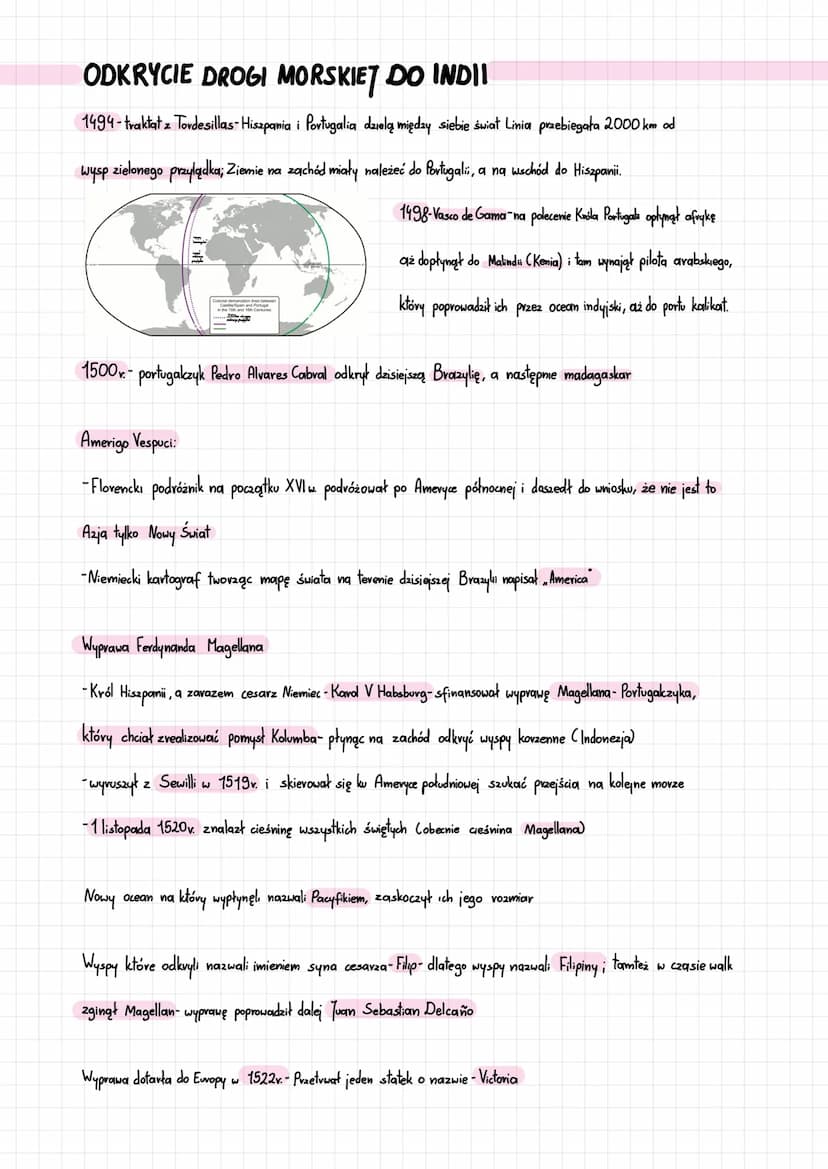 ODKRYCIE DROGI MORSKIEJ DO INDII
1494-traktat z Tordesillas-Hiszpania i Portugalia dzielą między siebie świat Linia przebiegała 2000 km od
wysp zielonego przylądka; Ziemie na zachód miały należeć do Portugalii, a na wschód do Hiszpanii.
1498-Vasco de Gama-na polecenie Króla Portugali opłynął afrykę
aż dopłynął do Malindii (Kenia) i tam wynajął pilota arabskiego,
który poprowadził ich przez ocean indyjski, aż do portu kalikat.
Colonial demarcation lines between
Castille/Spain and Portugal
in the 15th and 16th Centuries
1500r.- portugalczyk Pedro Alvares Cabral odkrył dzisiejszą Brazylię, a następnie madagaskar
Amerigo Vespuci:
-Florencki podróżnik na początku XVI w. podróżował po Ameryce północnej i doszedł do wniosku, że nie jest to
Azja tylko Nowy Świat
-Niemiecki kartograf tworząc mapę świata na terenie dzisiejszej Brazylii napisał „America"
Wyprawa Ferdynanda Magellana
-Król Hiszpanii, a zarazem cesarz Niemiec-Karol V Habsburg-sfinansował wyprawę Magellana-Portugalczyka,
który chciał zrealizować pomysł Kolumba- płynąc na zachód odkryć wyspy korzenne (Indonezja)
-wyruszył z Sewilli w 1519r. i skierował się ku Ameryce południowej szukać przejścia na kolejne morze
-1 listopada 1520r. znalazł cieśninę wszystkich świętych (obecnie cieśnina Magellana)
Nowy ocean na który wypłynęli nazwali Pacyfikiem, zaskoczył ich jego rozmiar
Wyspy które odkryli nazwali imieniem syna cesarza-Filip- dlatego wyspy nazwali Filipiny; tamteż w czasie walk
zginął Magellan- wyprawę poprowadził dalej Juan Sebastian Delcaño
Wyprawa dotarła do Europy w 1522r.- Przetrwał jeden statek o nazwie-Victoria